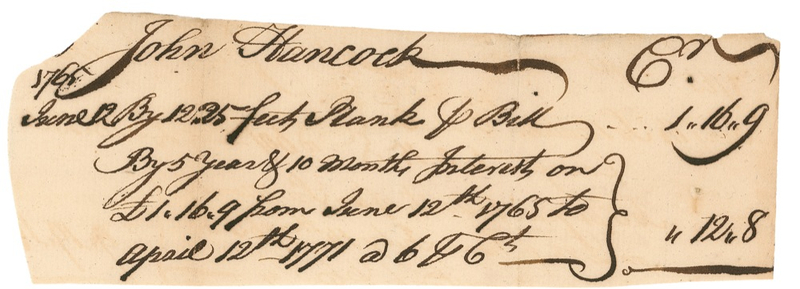 John Hancock Cr
1765
June 12 By 12.25 feet Plank ⅌ Bill .... 1 „ 16 „ 9
By 5 Year & 10 Months Interest on
£1 „ 16 „ 9 from June 12th 1765 to
April 12th 1771 @ 6 ⅌ Ct „ 12 „ 8